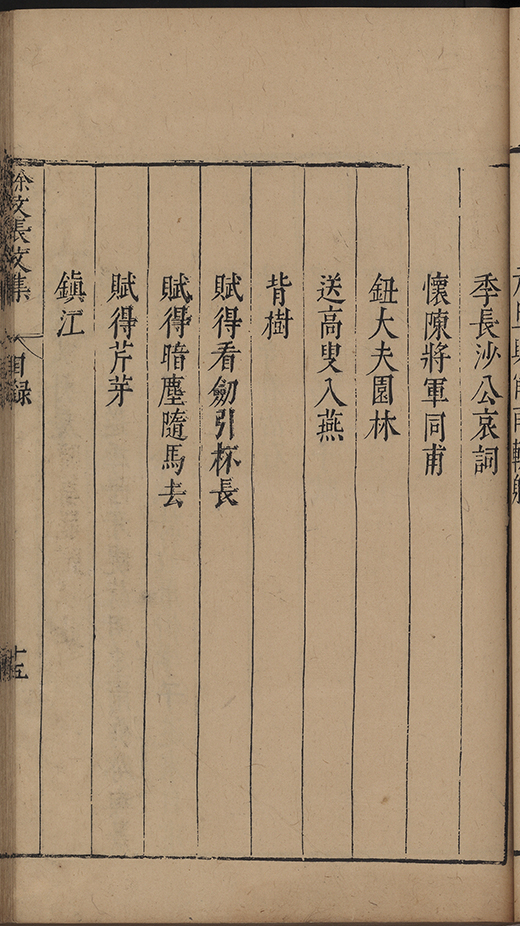 季長沙公哀詞
懷陳將軍同甫
鈕大夫園林
送高叟入燕
背樹
賦得看劒引杯長
賦得暗塵隨馬去
賦得芹芽
鎮江
徐文長文集
目録
十五